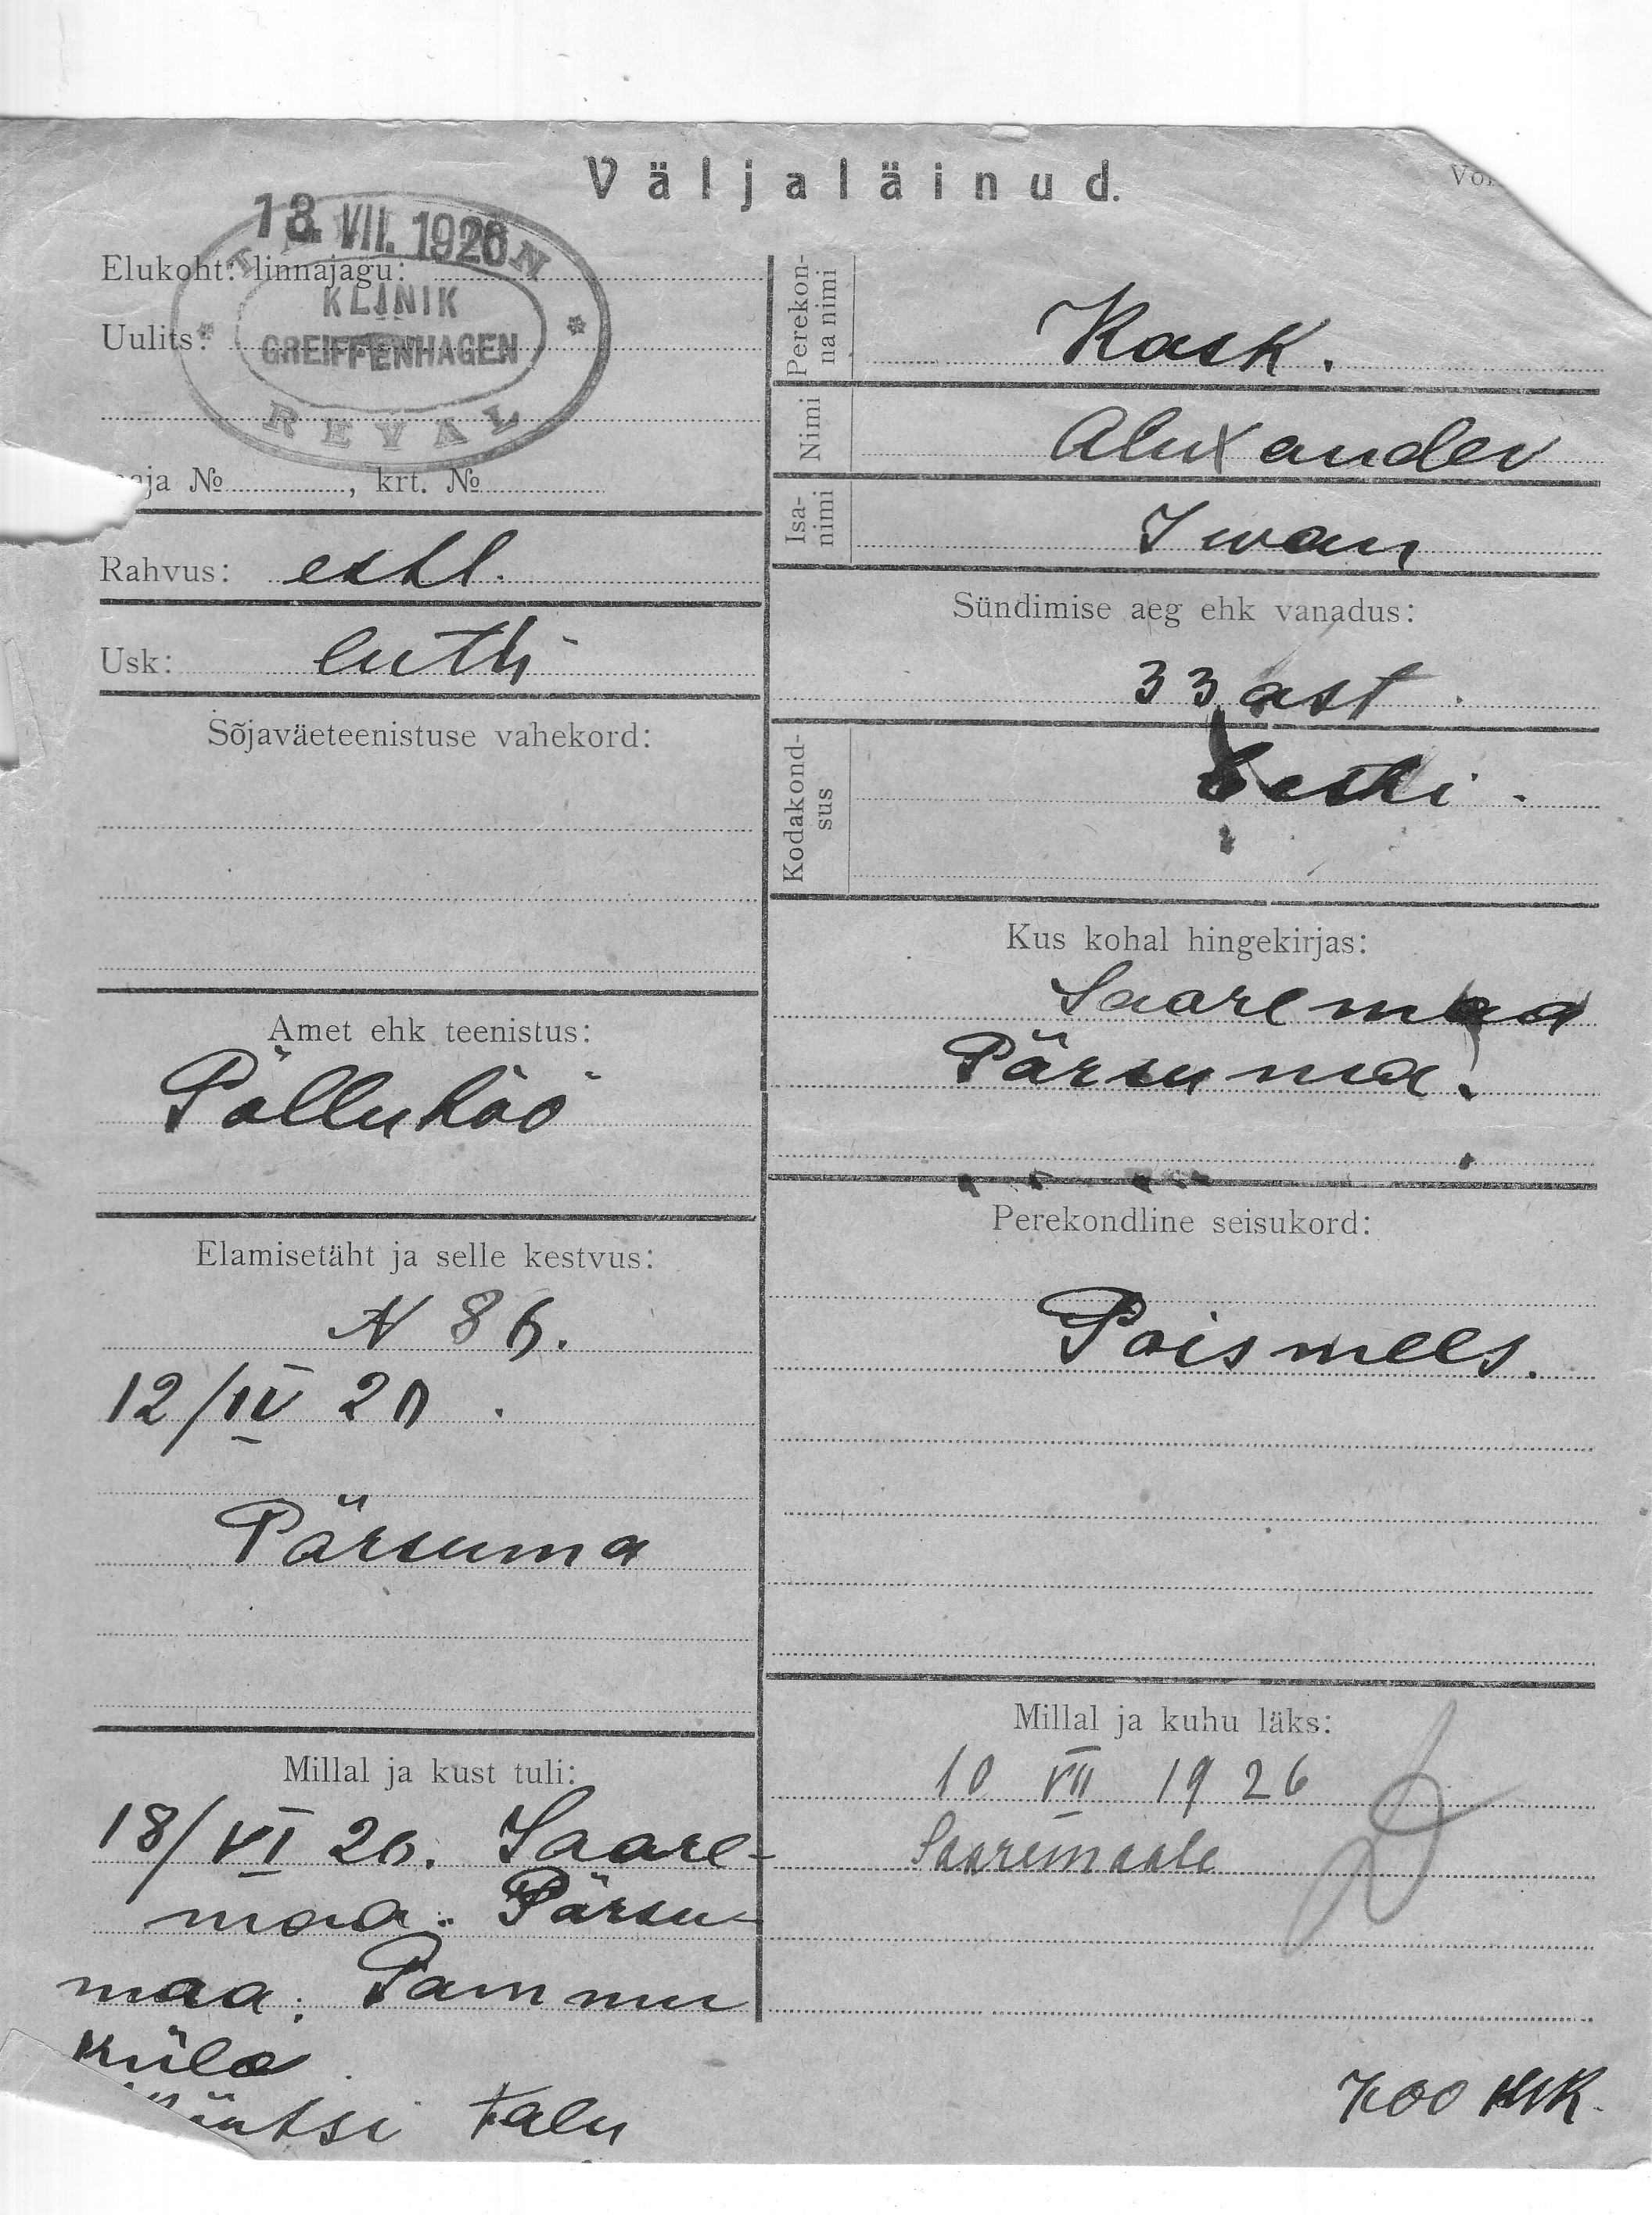 Väljaläinud.
13. VII. 1926
Elukoht: linnajagu:
KLINIK
Uulits:
GREIFFENHAGEN
REVAL
aja № , krt. №
Rahvus: estl.
Usk: luth
Sõjaväeteenistuse vahekord:
Amet ehk teenistus:
Põllutöö
Elamisetäht ja selle kestvus:
N 86.
12/IV 20.
Pärsuma
Millal ja kust tuli:
18/VI 26. Saare-
maa. Pärsu-
maa. Pammu
küla
talu
Perekon-
na nimi
Kask.
Nimi
Alexander
Isa-
nimi
Iwan
Sündimise aeg ehk vanadus:
33 ast.
Kodakond-
sus
Eesti.
Kus kohal hingekirjas:
Saaremaa
Pärsuma.
Perekondline seisukord:
Poismees.
Millal ja kuhu läks:
10 VII 1926
Saaremaale